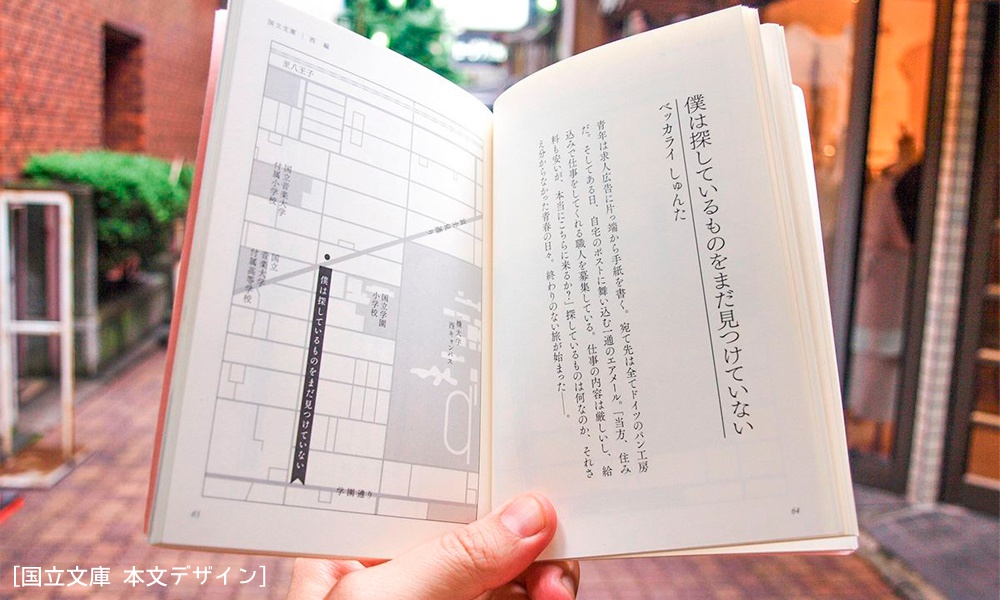 僕は探しているものをまだ見つけていない
ベッカライ しゅんた
青年は求人広告に片っ端から手紙を書く。宛て先は全てドイツのパン工房
だ。そしてある日、自宅のポストに舞い込む一通のエアメール。「当方、住み
込みで仕事をしてくれる職人を募集している。仕事の内容は厳しいし、給
料も安いが、本当にこちらに来るか？」探しているものは何なのか、それさ
え分からなかった青春の日々。終わりのない旅が始まった――。
64
国立文庫｜西 編
至八王子
国立音楽大学
付属小学校
国立
音楽大学
付属高等学校
国立学園
小学校
一橋大学
西キャンパス
僕は探しているものをまだ見つけていない
学園通り
65
[国立文庫 本文デザイン]